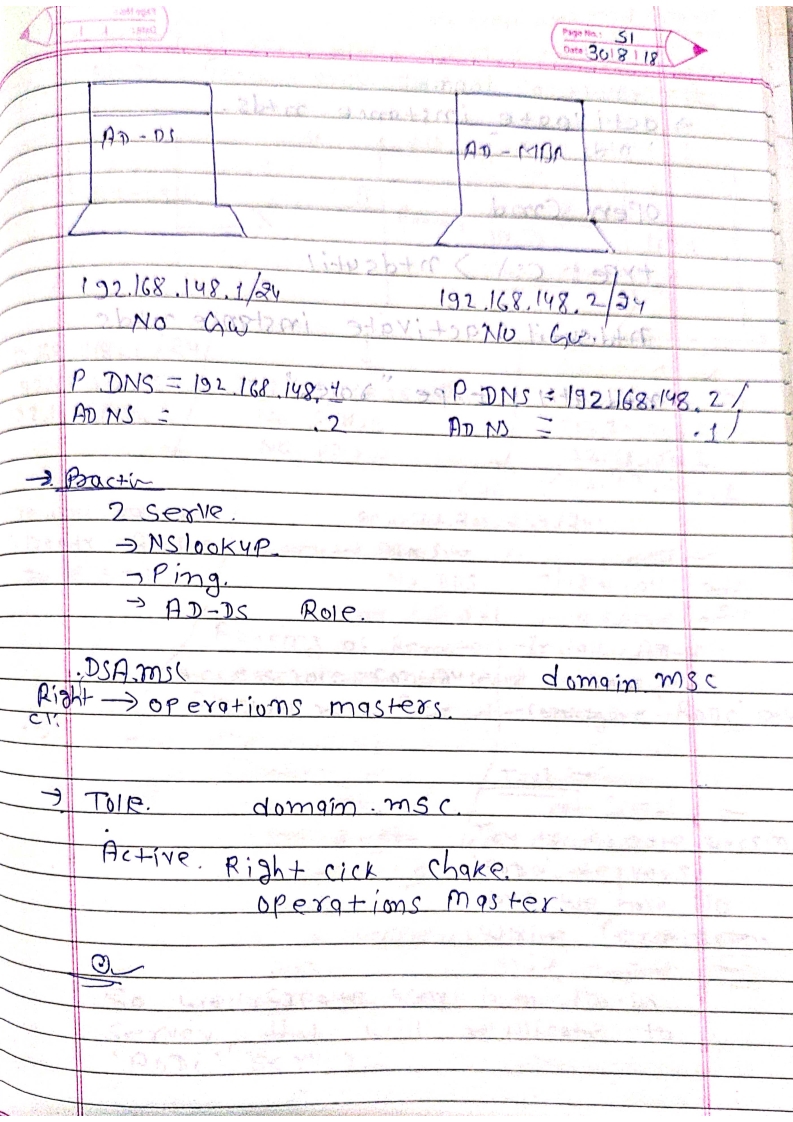 Page No.: 51
Date: 30 8 18
AD-DS
AD-MBR
192.168.148.1/24
192.168.148.2/24
No GW
No Gw.
P DNS = 192.168.148.1
P-DNS = 192.168.148.2
ADNS = .2
AD NS = .1
→ Practi
2 Serve.
→ NSlookup
→ Ping.
→ AD-DS Role.
.DSA.msc
domain msc
Right → operations masters.
cl.
→ domain.msc.
Active. Right cick chake.
operations master.